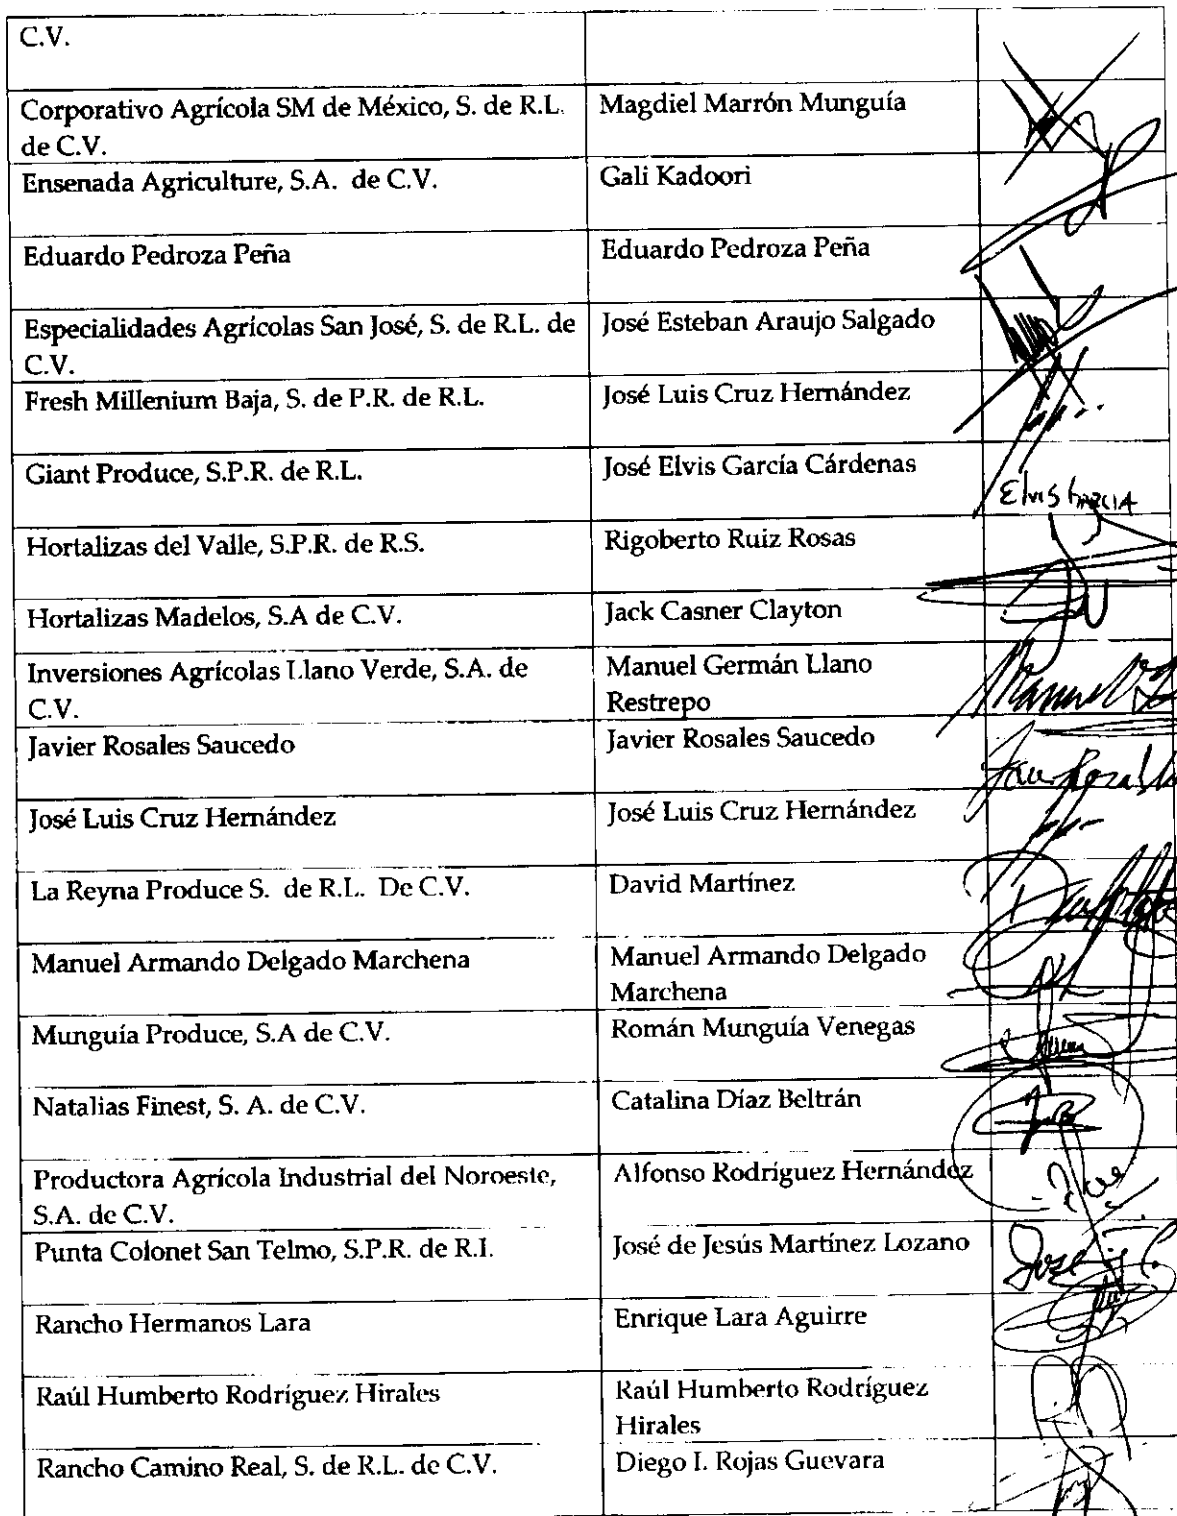 C.V.
Corporativo Agrícola SM de México, S. de R.L. Magdiel Marrón Munguía
de C.V.
Ensenada Agriculture, S.A. de C.V. Gali Kadoori
Eduardo Pedroza Peña Eduardo Pedroza Peña
Especialidades Agrícolas San José, S. de R.L. de José Esteban Araujo Salgado
C.V.
Fresh Millenium Baja, S. de P.R. de R.L. José Luis Cruz Hernández
Giant Produce, S.P.R. de R.L. José Elvis García Cárdenas
Elvis García
Hortalizas del Valle, S.P.R. de R.S. Rigoberto Ruiz Rosas
Hortalizas Madelos, S.A de C.V. Jack Casner Clayton
Inversiones Agrícolas Llano Verde, S.A. de Manuel Germán Llano
C.V. Restrepo
Manuel
Javier Rosales Saucedo Javier Rosales Saucedo
José Luis Cruz Hernández José Luis Cruz Hernández
La Reyna Produce S. de R.L. De C.V. David Martínez
Manuel Armando Delgado Marchena Manuel Armando Delgado
Marchena
Munguía Produce, S.A de C.V. Román Munguía Venegas
Natalias Finest, S. A. de C.V. Catalina Díaz Beltrán
Productora Agrícola Industrial del Noroeste, Alfonso Rodríguez Hernández
S.A. de C.V.
Punta Colonet San Telmo, S.P.R. de R.I. José de Jesús Martínez Lozano
Rancho Hermanos Lara Enrique Lara Aguirre
Raúl Humberto Rodríguez Hirales Raúl Humberto Rodríguez
Hirales
Rancho Camino Real, S. de R.L. de C.V. Diego I. Rojas Guevara